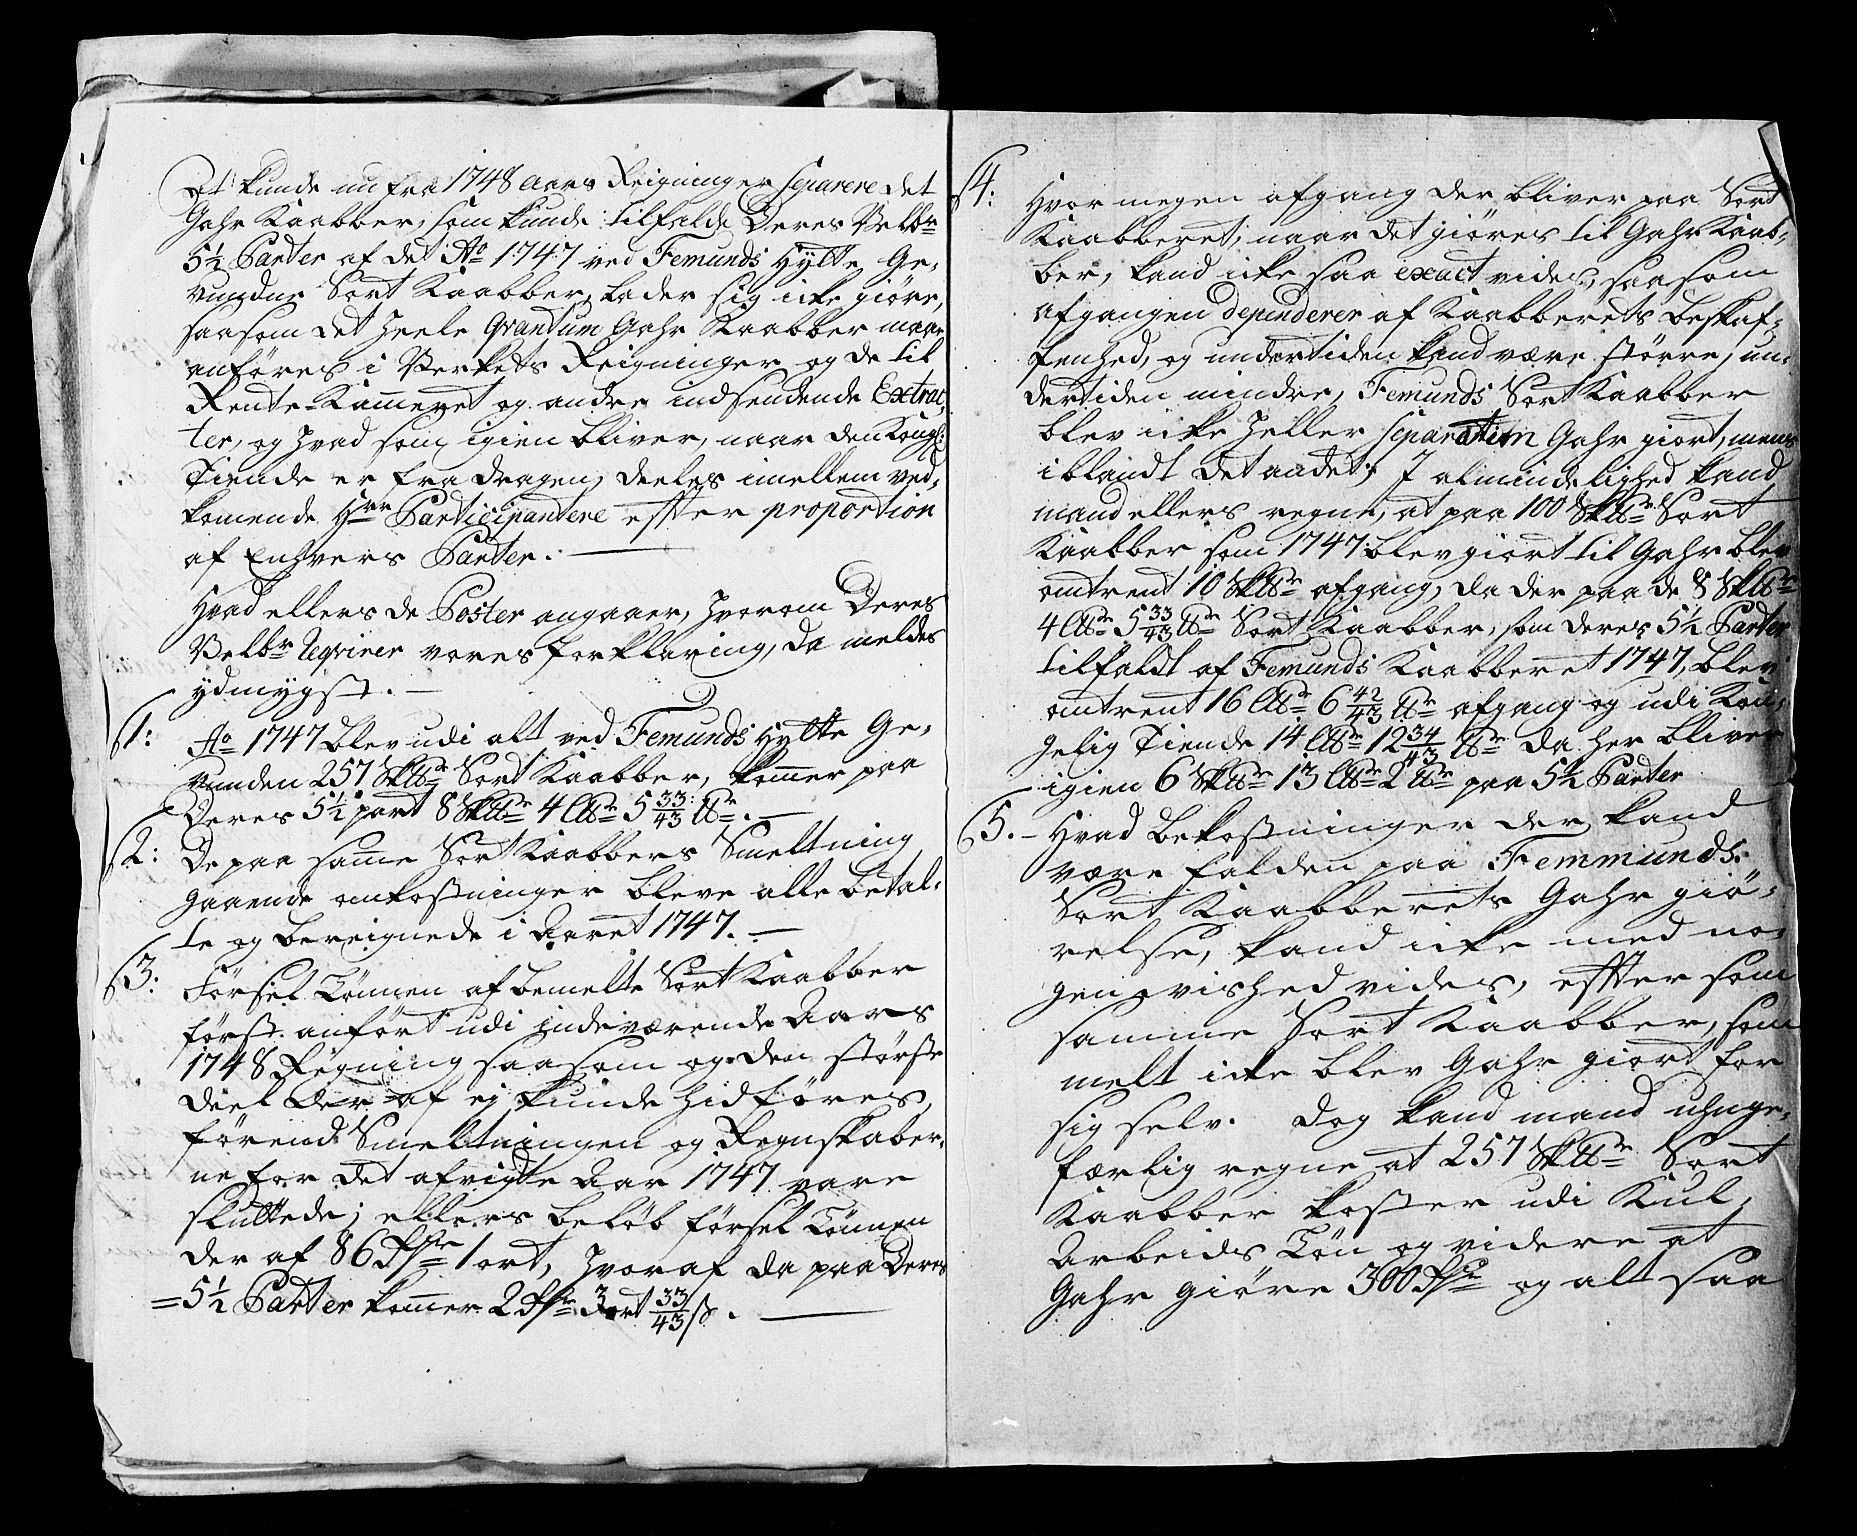 At kunde nu fra 1748 Aars Reigninger Separere det
Gahr Kaabber, som kunde tilfalde Deres Velb:r
5½ Parter af det Ao 1747 ved Femunds Hytte Ge,
vundne Sort Kaabber, lader sig icke giöre,
saasom det heele Qvantum Gahr Kaabber maae
anföres i Verkets Reigninger og de til
Rente-Kam̅eret og andre indsendende Extrac,
ter, og hvad som igien bliver, naar den Kongl:
Tiende er fradragen, deeles imellem ved,
kom̅ende Hrr Participantere effter proportion
af Enhvers Parter. —
Hvad ellers de Poster angaaer, hvorom Deres
Velb:r Reqvirer vores forklaring, da meldes
ydmygst. —
1: Ao 1747 blev udi alt ved Femunds Hytte Ge,
vunden 257 Sk℔r Sort Kaabber, kom̅er paa
Deres 5½ part 8 Sk℔r 4 L℔r 5 33/43 ℔r. —
2: De paa sam̅e Sort Kaabbers Smeltning
gaaende omkostninger bleve alle betal,
te og bereignede i Aaret 1747. —
3: Försel Lönnen af bemelte Sort Kaabber
först anfört udi indeværende Aars
1748 Regning saasom og den störste
deel der af ej kunde hidföres,
förend Smeltningen og Regnskaber,
ne for det afvigte Aar 1747 vare
sluttede; ellers belöb försel Lönnen
der af 86 Rdr 1 ort, hvoraf da paa Deres
5½ Parter kom̅er 2 Rdr 3 ort 33/43 ß. —
4: Hvor megen afgang der bliver paa Sort
Kaabberet, naar det giöres til Gahr Kaab,
ber, kand icke saa exact vides, saasom
afgangen dependerer af Kaabberets beskaf,
fenhed, og undertiden kand være större, un,
dertiden mindre, Femunds Sort Kaabber
blev icke heller separatim Gahr giort, mens
iblandt det andet; I almindelighed kand
mand ellers regne, at paa 100 Sk℔r Sort
Kaabber som 1747 blev giort til Gahr blev
omtrent 10 Sk℔r afgang, da der paa de 8 Sk℔r
4 L℔r 5 33/43 ℔r Sort Kaabber, som deres 5½ Parter
tilfaldt af Femunds Kaabberet 1747, blev
omtrent 16 L℔r 6 42/43 ℔r afgang og udi Kon,
gelig Tiende 14 L℔r 12 34/43 ℔r da her bliver
igien 6 Sk℔r 13 L℔r 2 ℔r paa 5½ Parter
5. — Hvad bekostninger der kand
være falden paa Femmunds
Sort Kaabberets Gahr giö,
relse, kand icke med no,
gen vished vides, effter som
samme Sort Kaabber, som
melt icke blev Gahr giort for
sig selv. Dog kand mand uhnge,
færlig regne at 257 Sk℔r Sort
Kaabber koster udi Kul,
Arbeids Lön og videre at
Gahr giöre 300 Rdr og alt saa